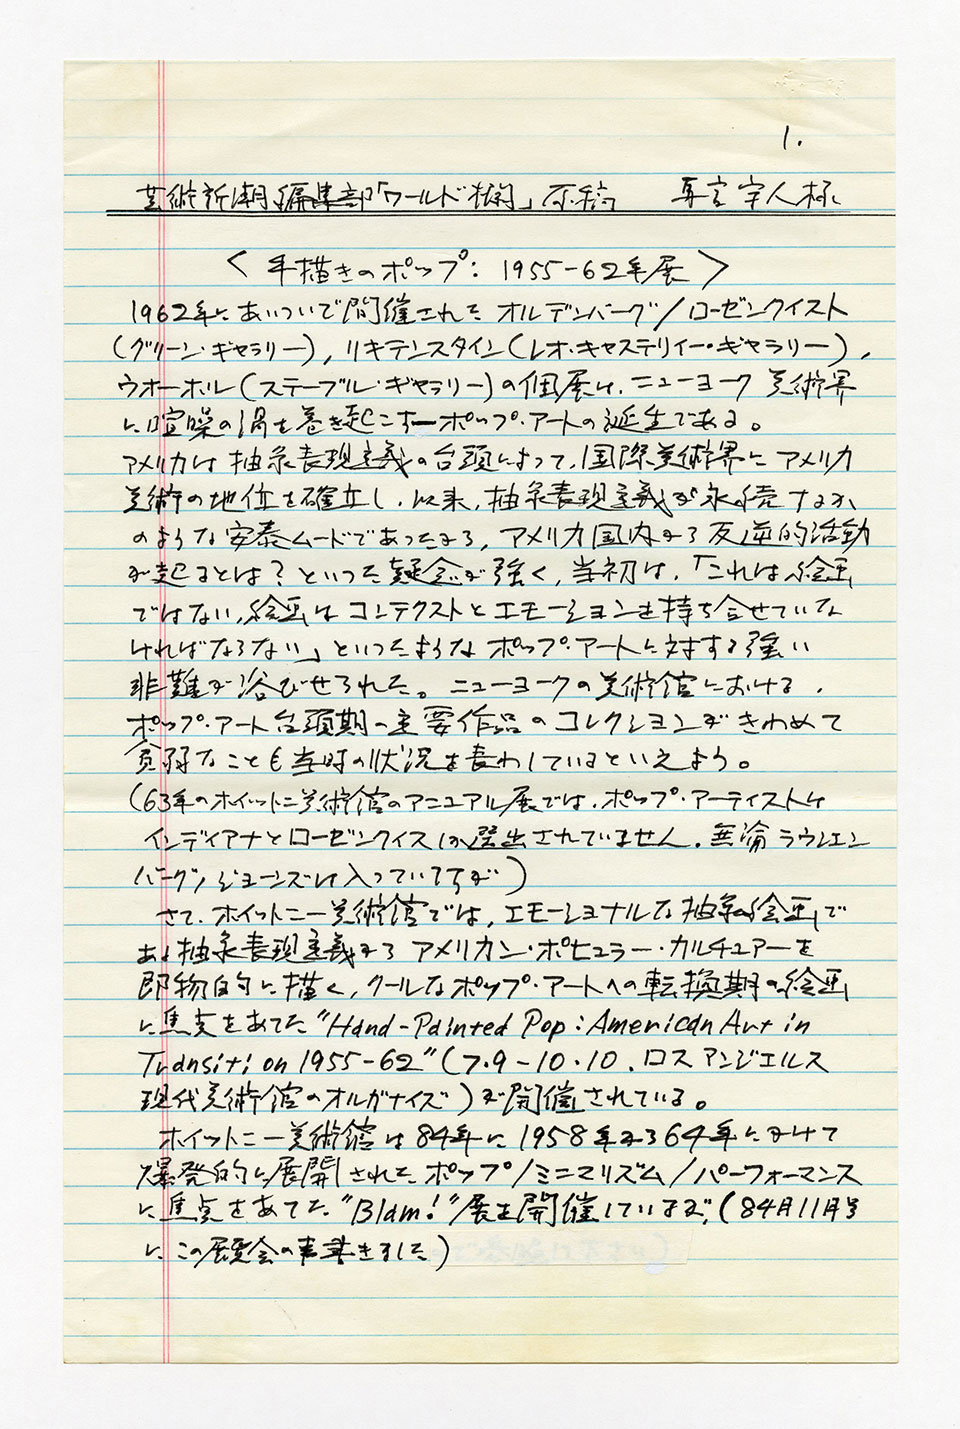 1.
芸術新潮編集部「ワールド欄」原稿 宇人様
〈手描きのポップ：1955-62年展〉
1962年にあいついで開催されたオルデンバーグ/ローゼンクイスト
(グリーン・ギャラリー), リキテンスタイン(レオ・キャステリィー・ギャラリー),
ウオーホル(ステーブル・ギャラリー)の個展は、ニューヨーク美術界
に喧噪の渦を巻き起こす―ポップ・アートの誕生である。
アメリカは抽象表現主義の台頭によって、国際美術界にアメリカ
美術の地位を確立し、以来、抽象表現主義が永続するか
のような安泰ムードであったから, アメリカ国内から反逆的活動
が起るとは？といった疑念が強く, 当初は、「これは絵画
ではない, 絵画はコンテクストとエモーションを持ち合せていな
ければならない」といったようなポップ・アートに対する強い
非難が浴びせられた。ニューヨークの美術館における、
ポップ・アート台頭期の主要作品のコレクションがきわめて
貧弱なことも当時の状況を表わしているといえよう。
(63年のホイットニー美術館のアニュアル展では、ポップ・アーティストは
インディアナとローゼンクイストしか選出されていません。無論ラウシェン
バーグ/ジョーンズは入っていますが)
さて、ホイットニー美術館では, エモーショナルな抽象絵画で
ある抽象表現主義からアメリカン・ポピュラー・カルチュアーを
即物的に描く, クールなポップ・アートへの転換期の絵画
に焦点をあてた"Hand-Painted Pop: American Art in
Transition 1955-62"(7・9-10・10、ロスアンジェルス
現代美術館のオルガナイズ)が開催されている。
ホイットニー美術館は84年に1958年から64年にかけて
爆発的に展開されたポップ/ミニマリズム/パーフォーマンス
に焦点をあてた"Blam!"展を開催していますが, (84年11月号
にこの展覧会の事書きました)